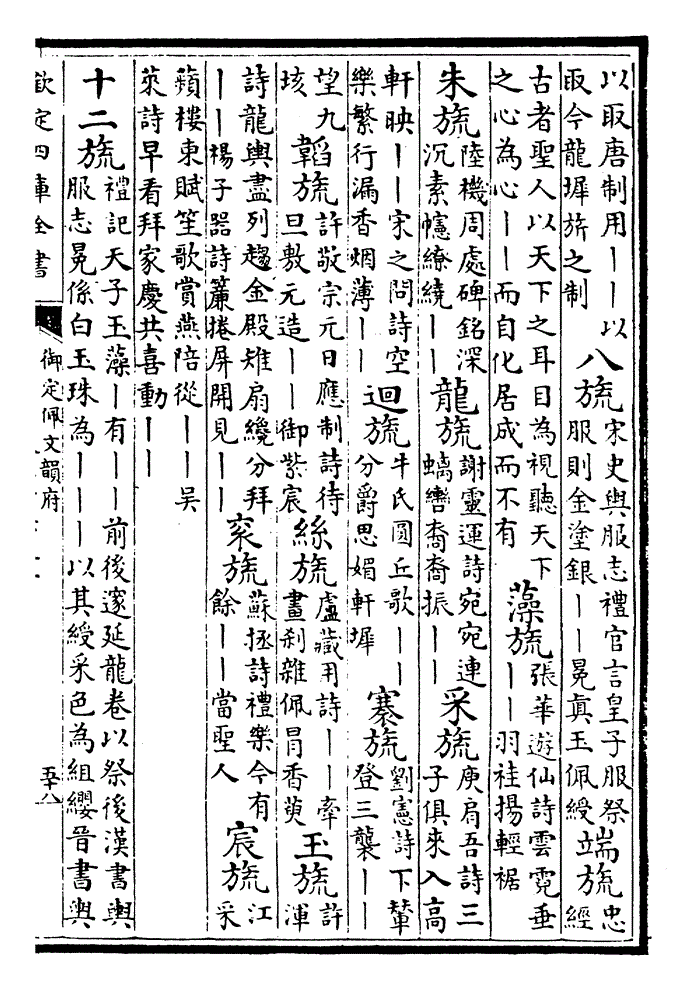 以取唐制用丨丨以
取今龍墀旂之制
八旒
宋史輿服志禮官言皇子服祭
服則金塗銀丨丨冕真玉佩綬
端旒
忠
經
古者聖人以天下之耳目為視聽天下
之心為心丨丨而自化居成而不有
藻旒
張華遊仙詩雲霓垂
丨丨羽袿揚輕裾
朱旒
陸機周處碑銘深
沉素幰繚繞丨丨
龍旒
謝靈運詩宛宛連
螭轡裔裔振丨丨
采旒
庾肩吾詩三
子俱來入高
軒映丨丨宋之問詩空
樂繁行漏香烟薄丨丨
迴旒
牛氏圓丘歌丨丨
分爵思媚軒墀
褰旒
劉憲詩下輦
登三襲丨丨
望九
垓
韜旒
許敬宗元日應制詩待
旦敷元造丨丨御紫宸
絲旒
盧藏用詩丨丨牽
畫刹雜佩冐香萸
玉旒
許
渾
詩龍輿盡列趨金殿雉扇纔分拜
丨丨楊子器詩簾捲屏開見丨丨
衮旒
蘇拯詩禮樂今有
餘丨丨當聖人
宸旒
江
采
蘋樓東賦笙歌賞燕陪從丨丨吳
萊詩早看拜家慶共喜動丨丨
十二旒
禮記天子玉藻丨有丨丨前後邃延龍卷以祭後漢書輿
服志冕係白玉珠為丨丨丨以其綬采色為組纓晉書輿
欽定四庫全書
御定佩文韻府
五十八